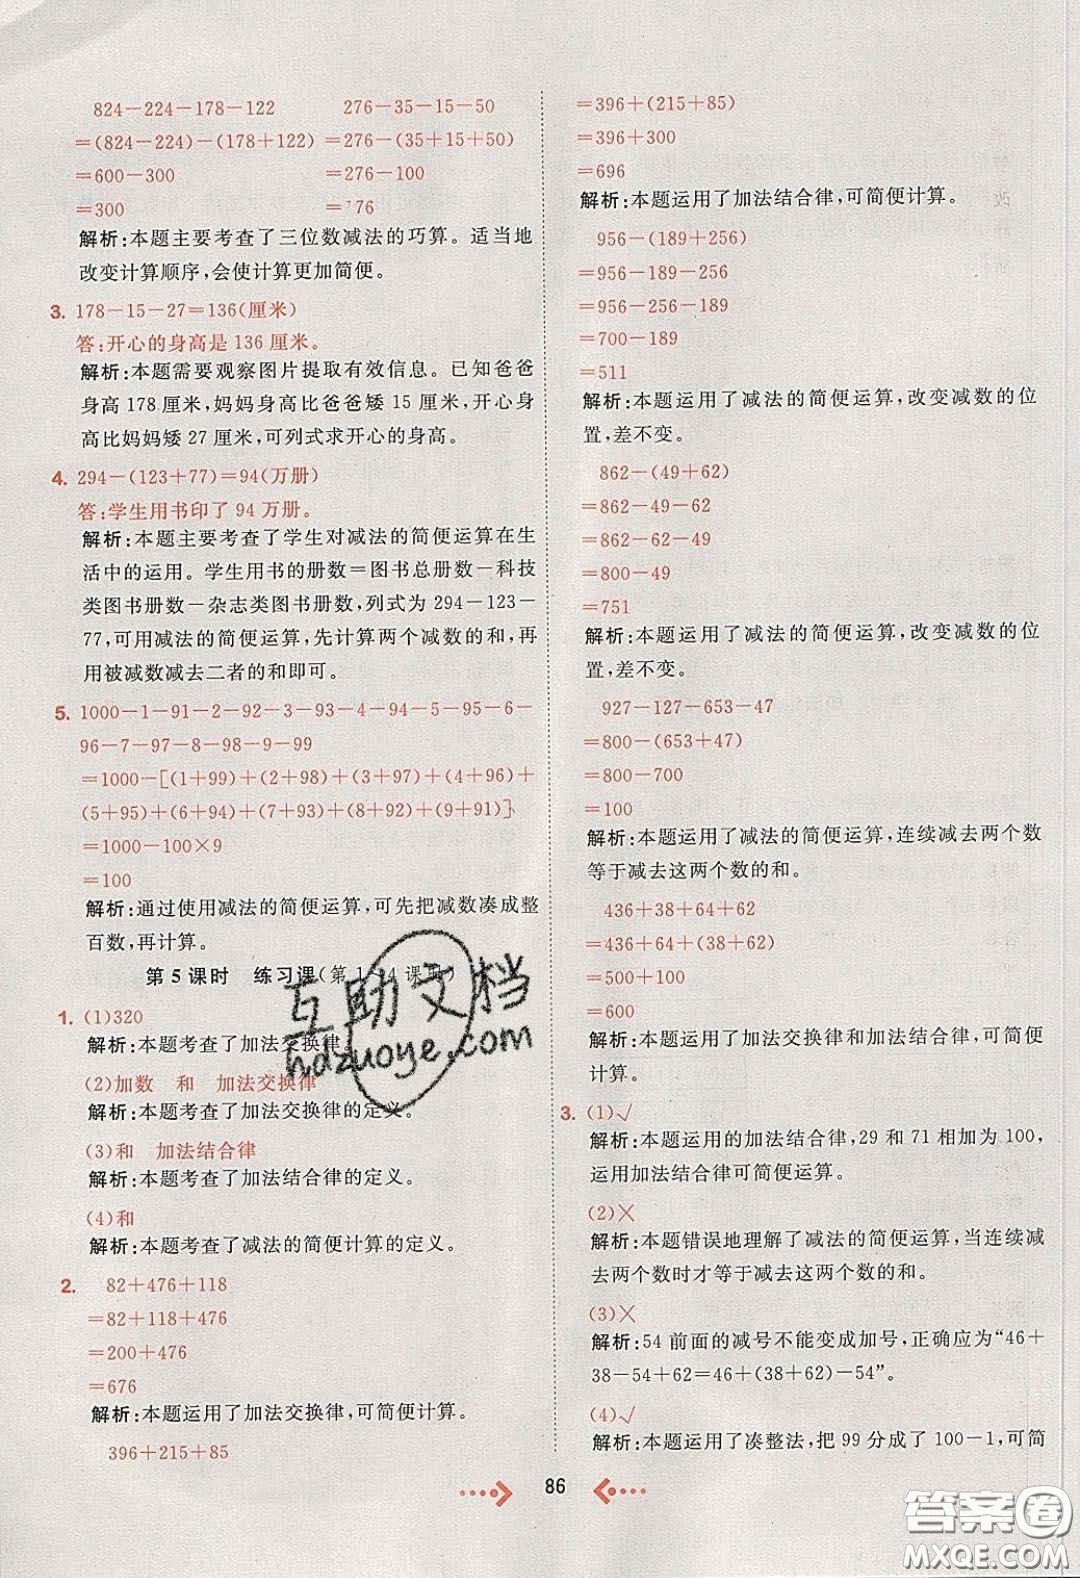 824－224－178－122
=(824－224)－(178+122)
=600－300
=300
276－35－15－50
=276－(35+15+50)
=276－100
=176
解析:本题主要考查了三位数减法的巧算。适当地
改变计算顺序,会使计算更加简便。
3. 178－15－27=136(厘米)
答:开心的身高是 136 厘米。
解析:本题需要观察图片提取有效信息。已知爸爸
身高 178 厘米,妈妈身高比爸爸矮 15 厘米,开心身
高比妈妈矮 27 厘米,可列式求开心的身高。
4. 294－(123+77)=94(万册)
答:学生用书印了 94 万册。
解析:本题主要考查了学生对减法的简便运算在生
活中的运用。学生用书的册数=图书总册数－科技
类图书册数－杂志类图书册数,列式为 294－123－
77,可用减法的简便运算,先计算两个减数的和,再
用被减数减去二者的和即可。
5. 1000－1－91－2－92－3－93－4－94－5－95－6－
96－7－97－8－98－9－99
=1000－[(1+99)+(2+98)+(3+97)+(4+96)+
(5+95)+(6+94)+(7+93)+(8+92)+(9+91)]
=1000－100×9
=100
解析:通过使用减法的简便运算,可先把减数凑成整
百数,再计算。
第 5 课时 练习课(第 1 4 课时)
1. (1)320
解析:本题考查了加法交换律。
(2)加数 和 加法交换律
解析:本题考查了加法交换律的定义。
(3)和 加法结合律
解析:本题考查了加法结合律的定义。
(4)和
解析:本题考查了减法的简便计算的定义。
2. 82+476+118
=82+118+476
=200+476
=676
解析:本题运用了加法交换律,可简便计算。
396+215+85
=396+(215+85)
=396+300
=696
解析:本题运用了加法结合律,可简便计算。
956－(189+256)
=956－189－256
=956－256－189
=700－189
=511
解析:本题运用了减法的简便运算,改变减数的位
置,差不变。
862－(49+62)
=862－49－62
=862－62－49
=800－49
=751
解析:本题运用了减法的简便运算,改变减数的位
置,差不变。
927－127－653－47
=800－(653+47)
=800－700
=100
解析:本题运用了减法的简便运算,连续减去两个数
等于减去这两个数的和。
436+38+64+62
=436+64+(38+62)
=500+100
=600
解析:本题运用了加法交换律和加法结合律,可简便
计算。
3. (1)√
解析:本题运用的加法结合律,29 和 71 相加为 100,
运用加法结合律可简便运算。
(2)×
解析:本题错误地理解了减法的简便运算,当连续减
去两个数时才等于减去这两个数的和。
(3)×
解析:54 前面的减号不能变成加号。正确应为“46+
38－54+62=46+(38+62)－54”。
(4)√
解析:本题运用了凑整法,把 99 分成了 100－1,可简
86
互助文档
hdzuoye.com
答案圈
MXQE.COM